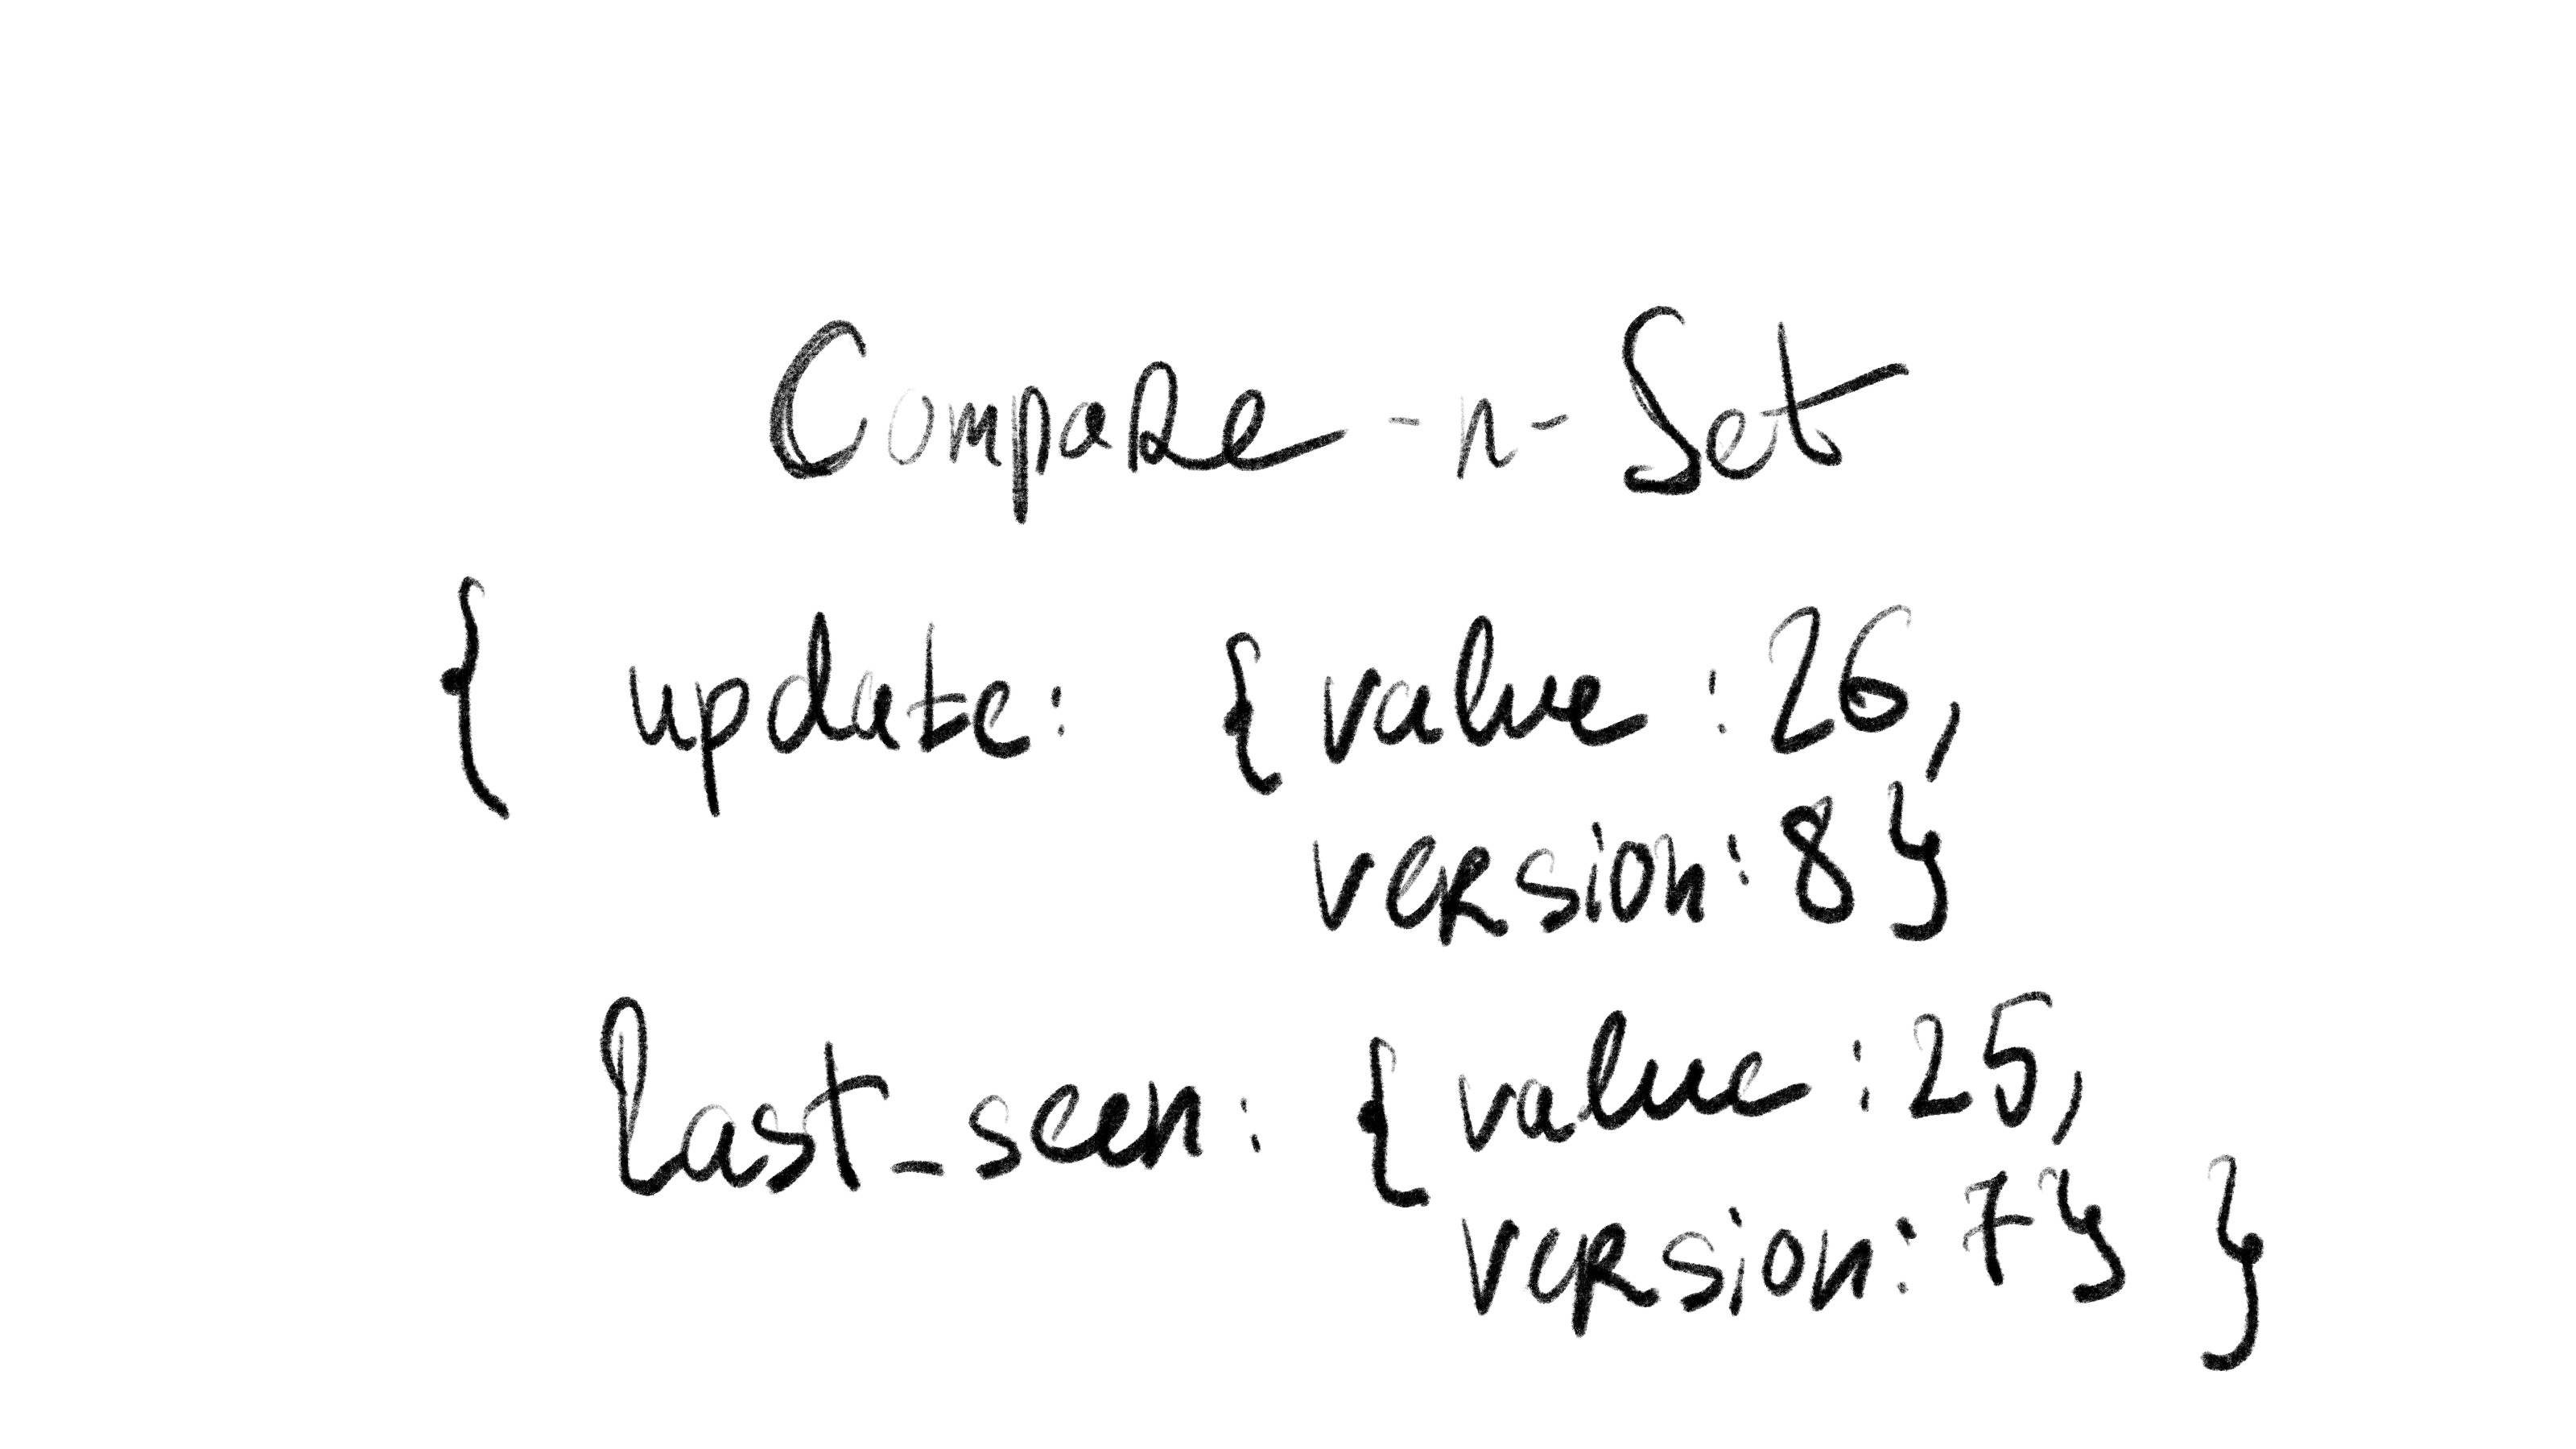 Compare -n- Set
{ update: { value : 26,
version: 8 }
last_seen: { value : 25,
version: 7 } }